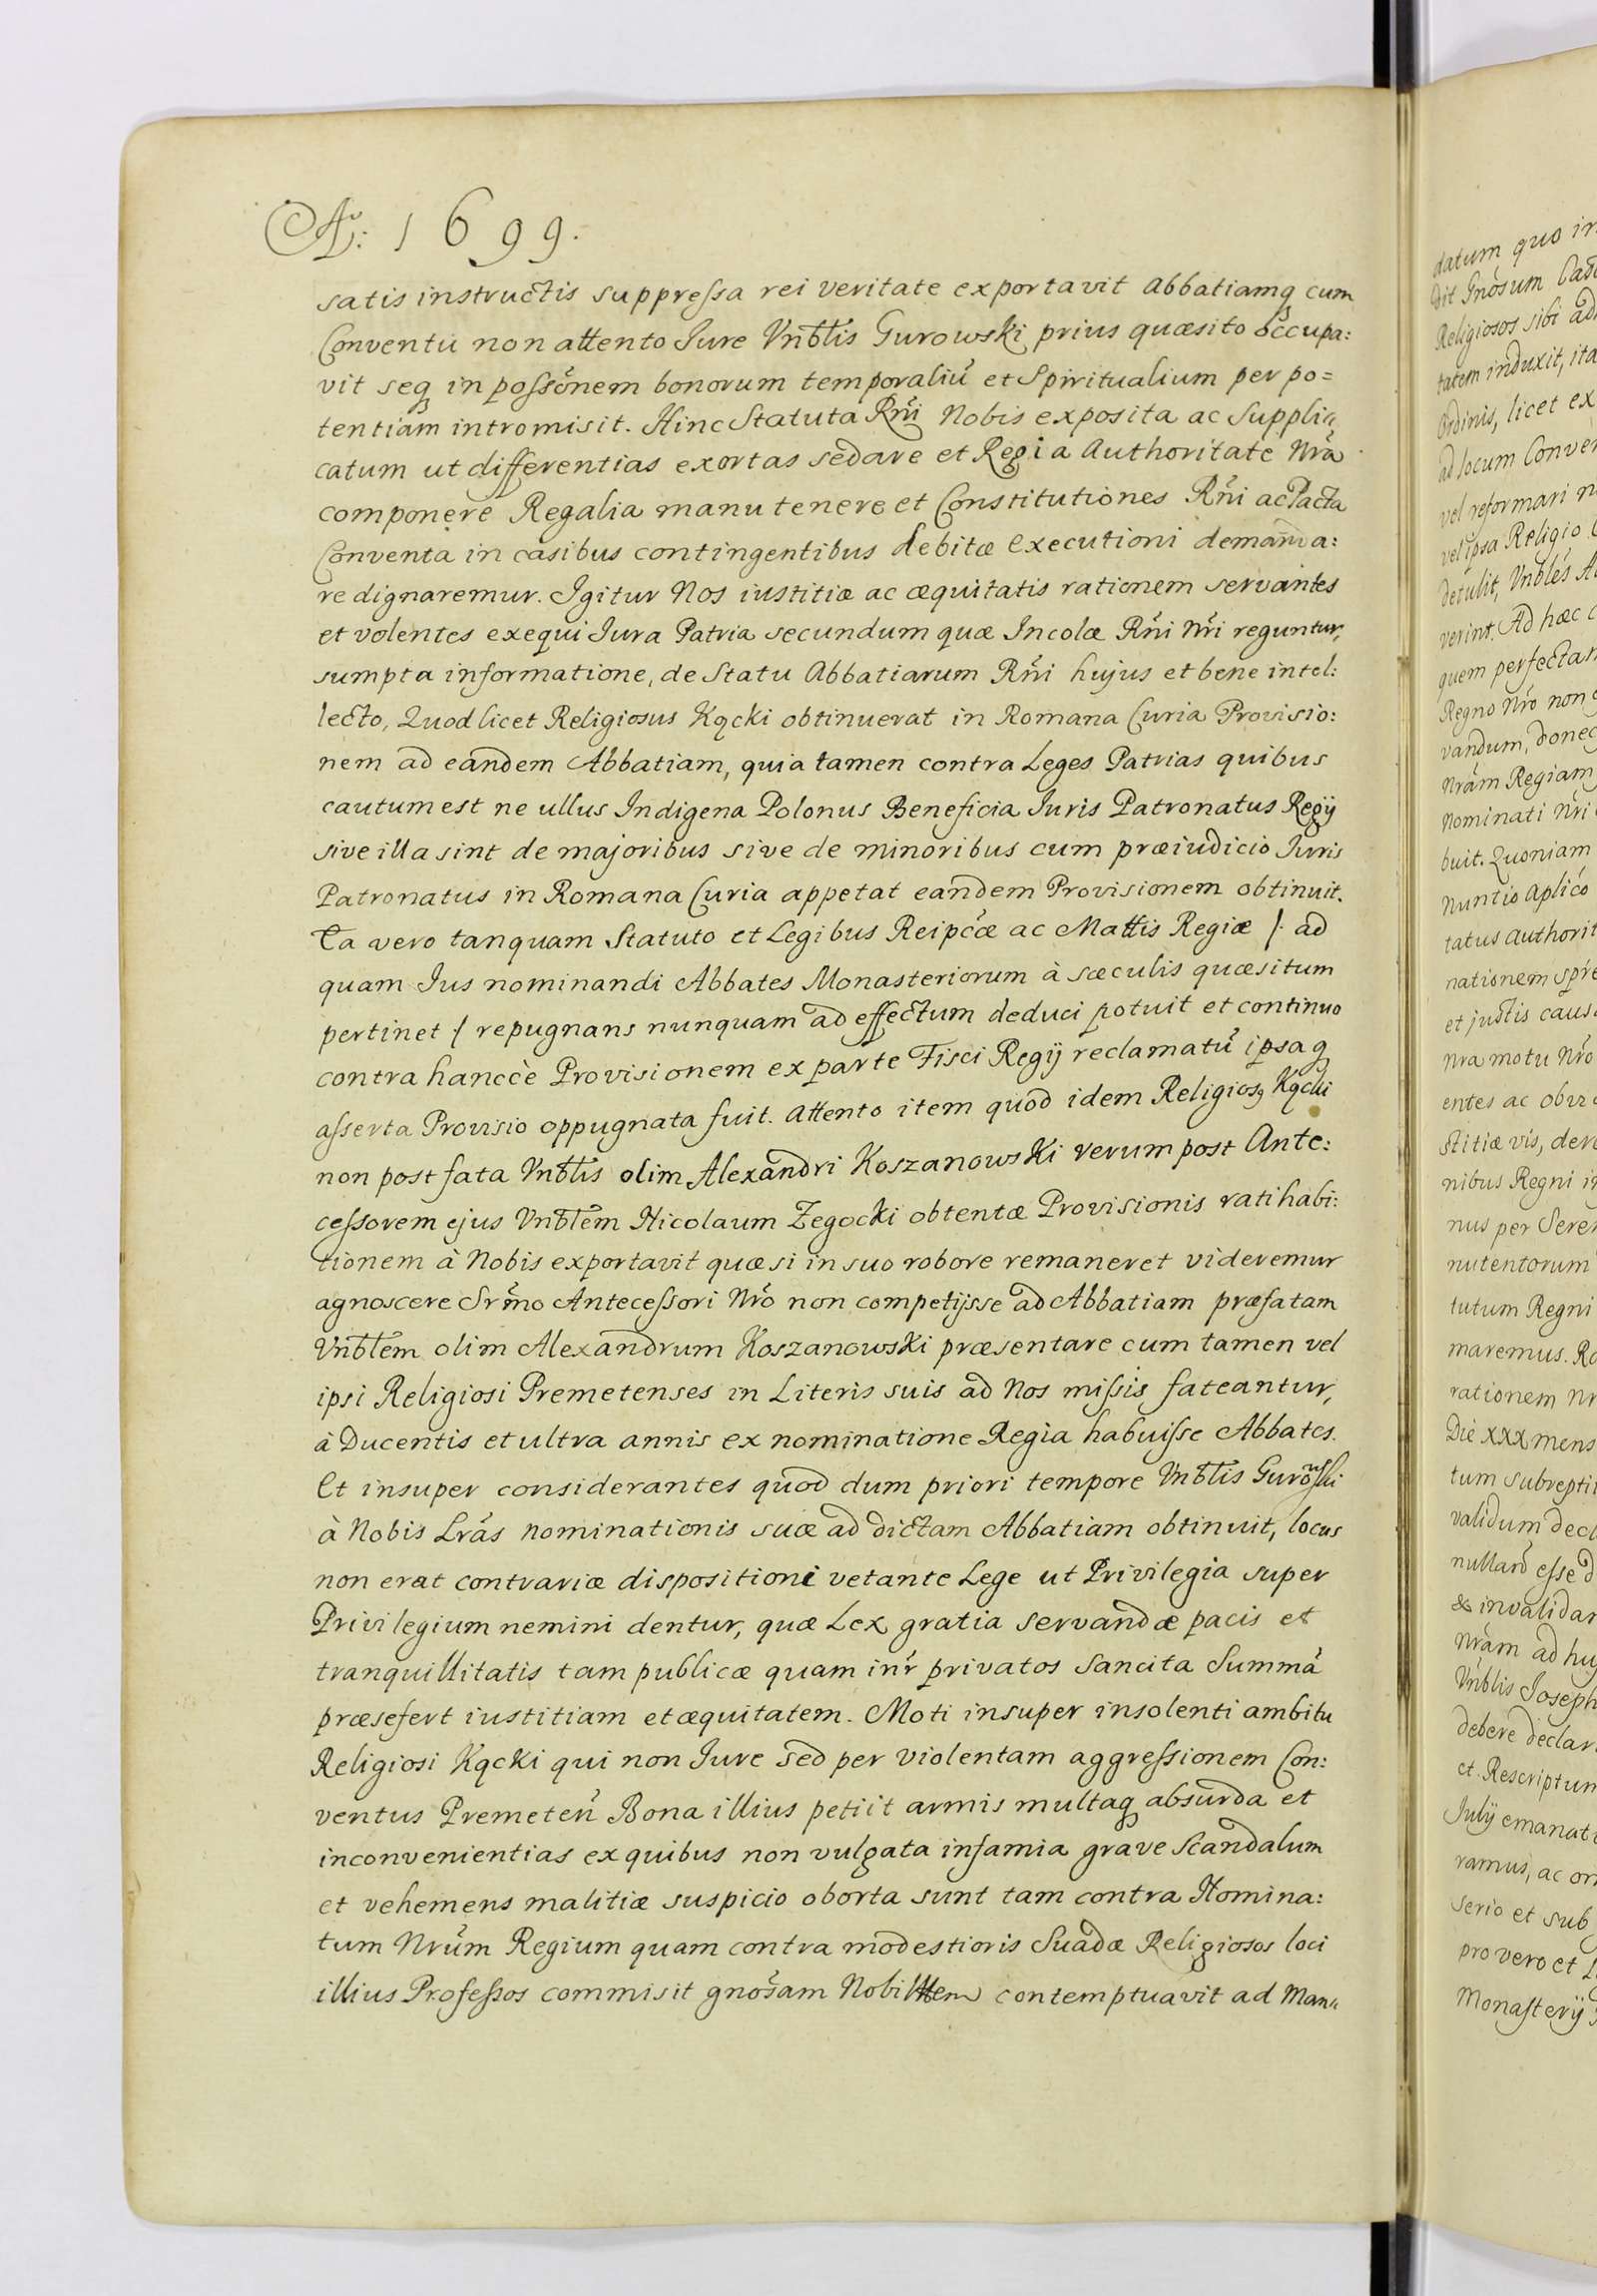 Aº: 1699.
satis instructis suppressa rei veritate exportavit Abbatiamq cum
Conventu non attento Iure Vnbtlis Gurowski prius quæsito occupa:
vit seq in possõnem bonorum temporaliũ et Spiritualium per po=
tentiam intromisit. Hinc Statuta Rñi Nobis exposita ac Suppli„
catum ut differentias exortas sedare et Regia Authoritate Nrã
componere Regalia manutenere et Constitutiones Rñi ac Pacta
Conventa in casibus contingentibus debitæ executioni demanda:
re dignaremur. Igitur Nos iustitiæ ac æquitatis rationem servantes
et volentes exequi Iura Patria secundum quæ Incolæ Rñi Nri reguntur,
sumpta informatione, de Statu Abbatiarum Rñi hujus et bene intel:
lecto, Quod licet Religiosus Kącki obtinuerat in Romana Curia Provisio:
nem ad eandem Abbatiam, quia tamen contra Leges Patrias quibus
cautum est ne ullus Indigena Polonus Beneficia Iuris Patronatus Regij
sive illa sint de majoribus sive de minoribus cum præiudicio Iuris
Patronatus in Romana Curia appetat eandem Provisionem obtinuit.
Ea vero tanquam Statuto et Legibus Reipcæ ac Mattis Regiæ /. ad
quam Ius nominandi Abbates Monasteriorum à sæculis quæsitum
pertinet ./ repugnans nunquam ad effectum deduci potuit et continuo
contra hancce Provisionem ex parte Fisci Regij reclamatũ ipsaq
asserta Provisio oppugnata fuit. Attento item quod idem Religiosꝯ Kącki
non post fata Vnbtlis olim Alexandri Koszanowski verum post Ante:
cessorem ejus Vnbtlem Nicolaum Zegocki obtentæ Provisionis ratihabi:
tionem à Nobis exportavit quæ si in suo robore remaneret videremur
agnoscere Srmo Antecessori Nro non competijsse ad Abbatiam præfatam
Vnbtlem olim Alexandrum Koszanowski præsentare cum tamen vel
ipsi Religiosi Premetenses in Literis suis ad Nos missis fateantur,
à Ducentis et ultra annis ex nominatione Regia habuisse Abbates.
Et insuper considerantes quod dum priori tempore Vnbtlis Gurowski
à Nobis Lrãs nominationis suæ ad dictam Abbatiam obtinuit, locus
non erat contrariæ dispositioni vetante Lege ut Privilegia super
Privilegium nemini dentur, quæ Lex gratia servandæ pacis et
tranquillitatis tam publicæ quam inr̃ privatos Sancita Summã
præsefert iustitiam et æquitatem. Moti insuper insolenti ambitu
Religiosi Kącki qui non Iure sed per violentam aggressionem Con:
ventus Premeteñ Bona illius petiit armis multaq absurda et
inconvenientias ex quibus non vulgata infamia grave Scandalum
et vehemens malitiæ suspicio oborta sunt tam contra Nomina:
tum Nrũm Regium quam contra modestioris Suadæ Religiosos loci
illius Professos commisit gnõsam Nobilttem contemptuavit ad Man„